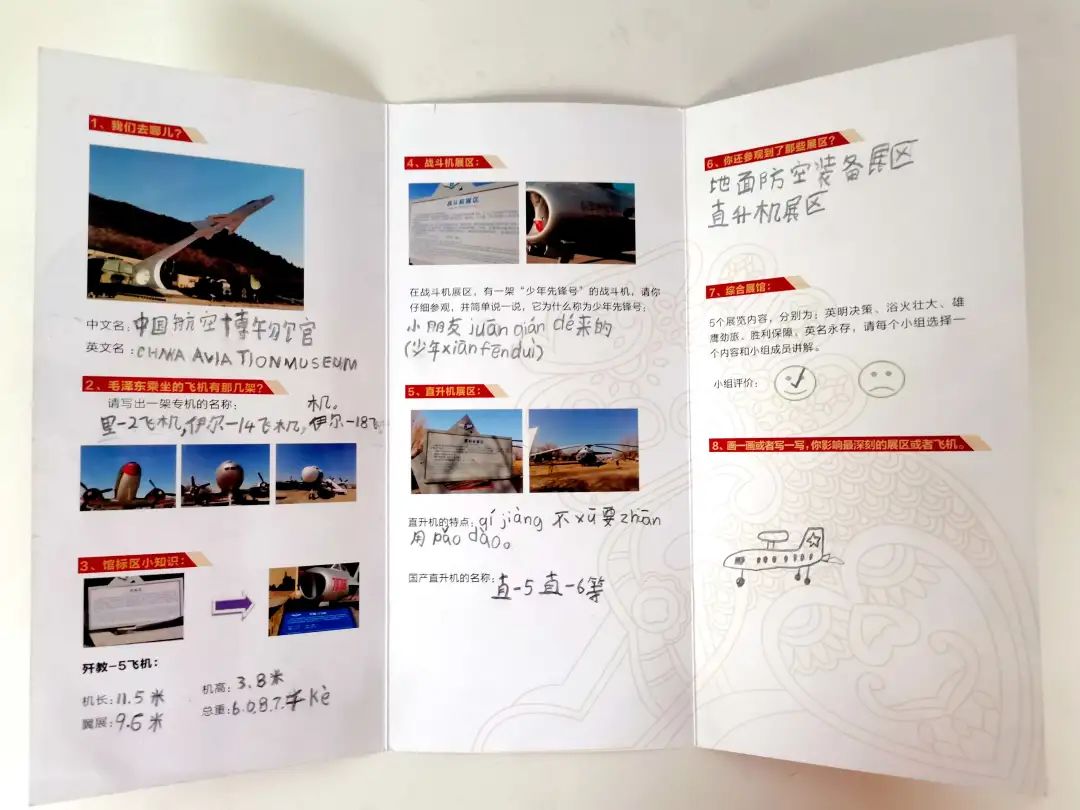 1、我们去哪儿？
中文名：中国航空博物官
英文名：CHINA AVIATIONMUSEUM
2、毛泽东乘坐的飞机有那几架？
请写出一架专机的名称： 机。
里-2飞机,伊尔-14飞机,伊尔-18飞
3、馆标区小知识：
歼教-5飞机：
机长：11.5米 机高：3.8米
翼展：9.6米 总重：6.0.8.7.千kè
4、战斗机展区：
战斗机展区
在战斗机展区，有一架“少年先锋号”的战斗机，请你
仔细参观，并简单说一说，它为什么称为少年先锋号：
小朋友juān qián dé来的
(少年xiānfēnduì)
5、直升机展区：
直升机的特点：qí jiàng 不xū要zhuān
用pǎo dào。
国产直升机的名称：直-5 直-6等
6、你还参观到了那些展区？
地面防空装备展区
直升机展区
7、综合展馆：
5个展览内容，分别为：英明决策、浴火壮大、雄
鹰劲旅、胜利保障、英名永存，请每个小组选择一
个内容和小组成员讲解。
小组评价：
8、画一画或者写一写，你影响最深刻的展区或者飞机。